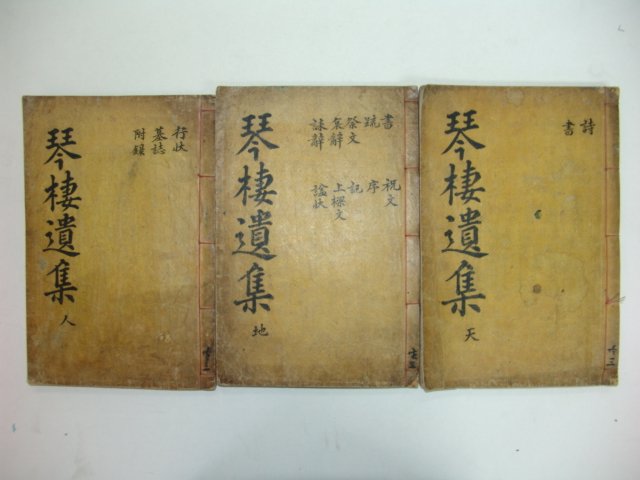 詩
書
琴棲遺集
天
書 祝文
疏 序
祭文 記
哀辭 上樑文
誄辭 諡狀
琴棲遺集
地
行狀
墓誌
附錄
琴棲遺集
人